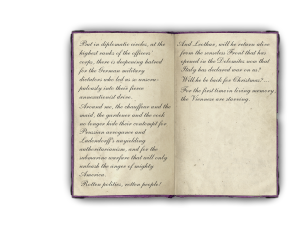 But in diplomatic circles, at the
highest ranks of the officers'
corps, there is deepening hatred
for the German military
dictators who led us so unscru-
pulously into their fierce
annexationist drive.
Around me, the chauffeur and the
maid, the gardener and the cook
no longer hide their contempt for
Prussian arrogance and
Ludendorff's unyielding
authoritarianism, and for the
submarine warfare that will only
unleash the anger of mighty
America.
Rotten politics, rotten people!
And Lothar, will he return alive
from the senseless Front that has
opened in the Dolomites now that
Italy has declared war on us?
Will he be back for Christmas?....
For the first time in living memory,
the Viennese are starving.